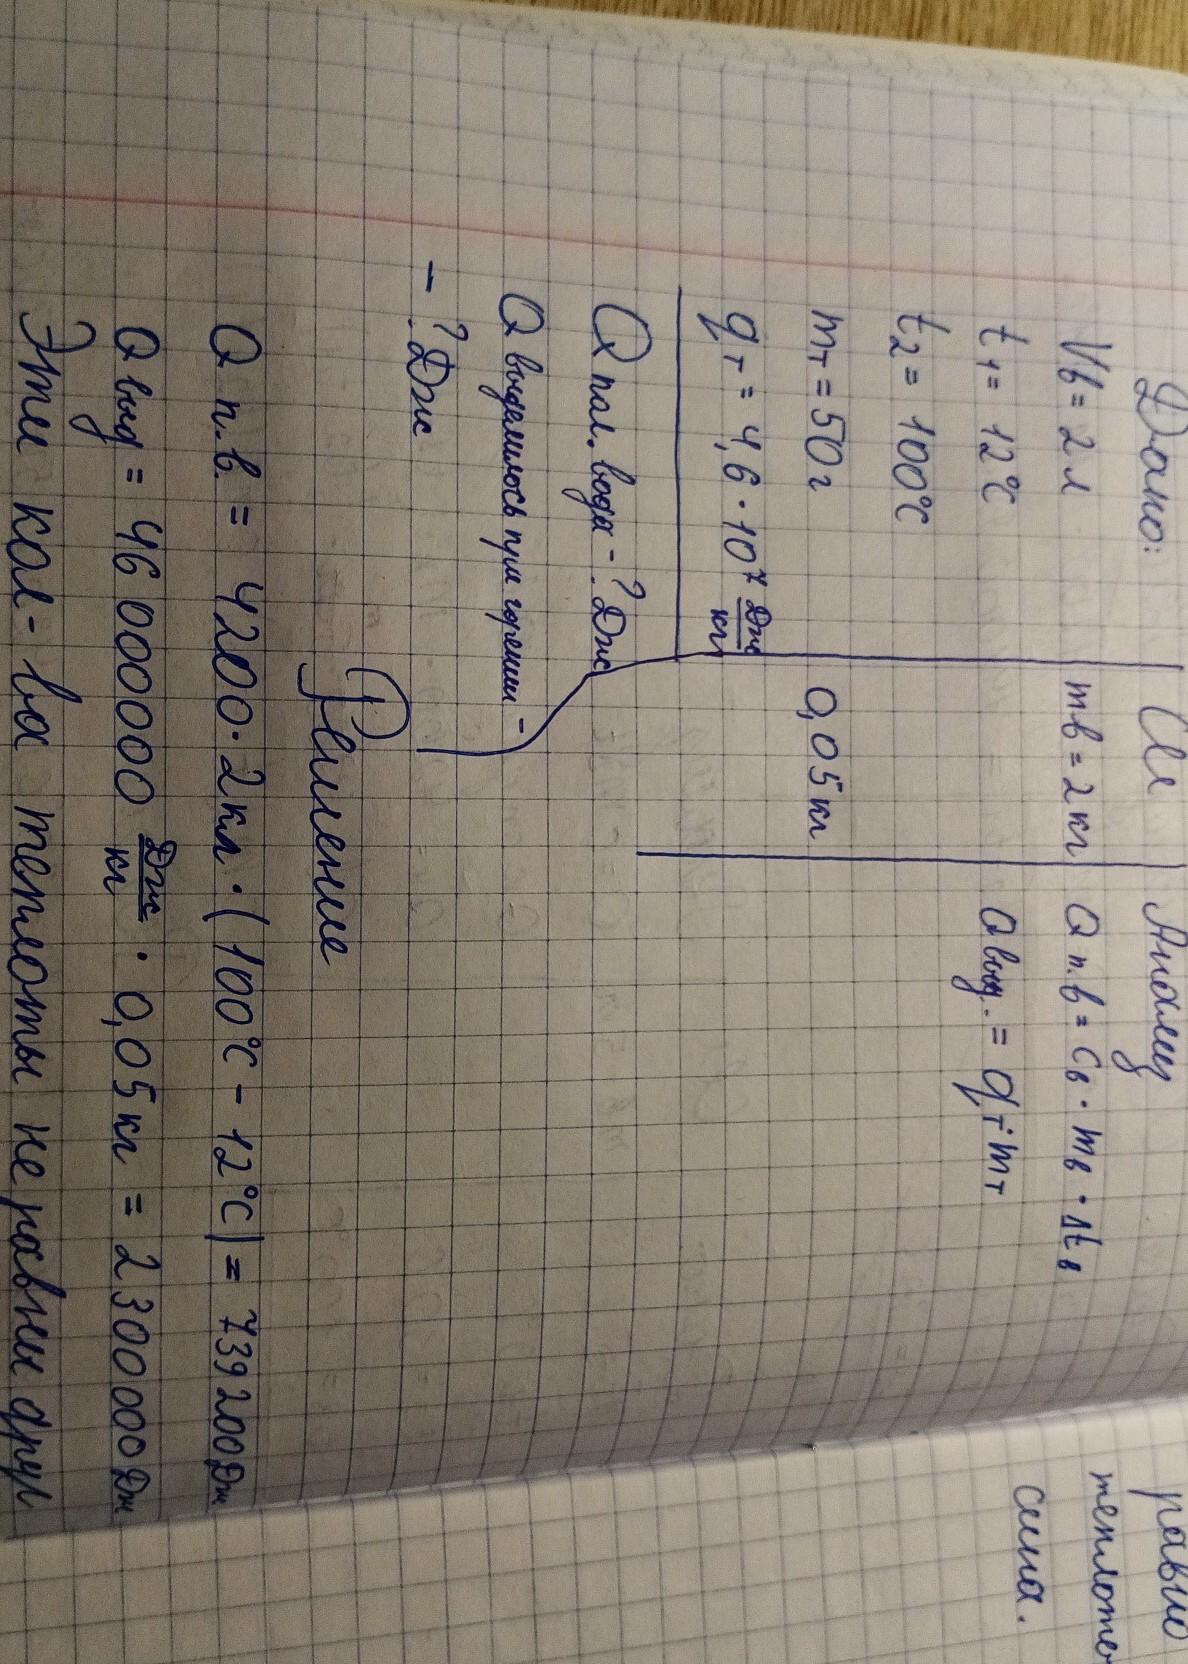 Дано:
Vв = 2 л
t1 = 12°C
t2 = 100°C
mт = 50 г
qт = 4,6 · 10⁷ Дж/кг
Q пол. вода - ? Дж
Q выделилось при горении -
- ? Дж
Си
mв = 2 кг
0,05 кг
Анализ
Q п.в = cв · mв · Δtв
Q выд. = qт · mт
Решение
Q п.в. = 4200 · 2 кг · (100°C - 12°C) = 739200 Дж
Q выд = 46 000000 Дж/кг · 0,05 кг = 2 300 000 Дж
Эти кол-ва теплоты не равны друг
равно
теплоте